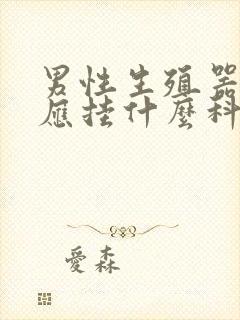 男性生殖器
應挂什麼科
愛森